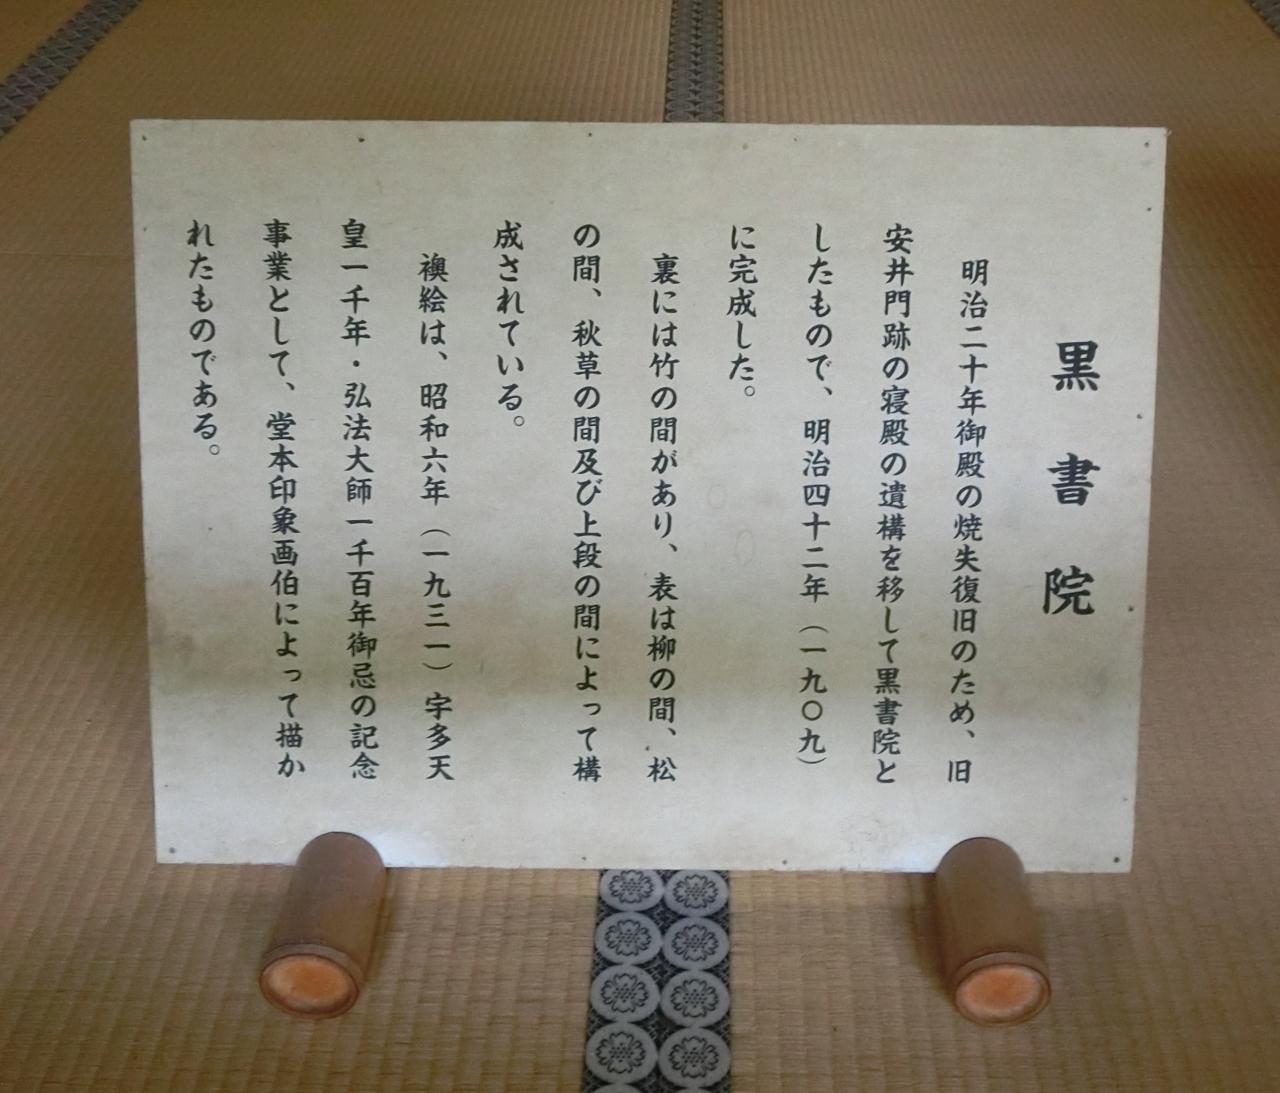 黒書院
明治二十年御殿の焼失復旧のため、旧
安井門跡の寝殿の遺構を移して黒書院と
したもので、明治四十二年（一九〇九）
に完成した。
裏には竹の間があり、表は柳の間、松
の間、秋草の間及び上段の間によって構
成されている。
襖絵は、昭和六年（一九三一）宇多天
皇一千年・弘法大師一千百年御忌の記念
事業として、堂本印象画伯によって描か
れたものである。